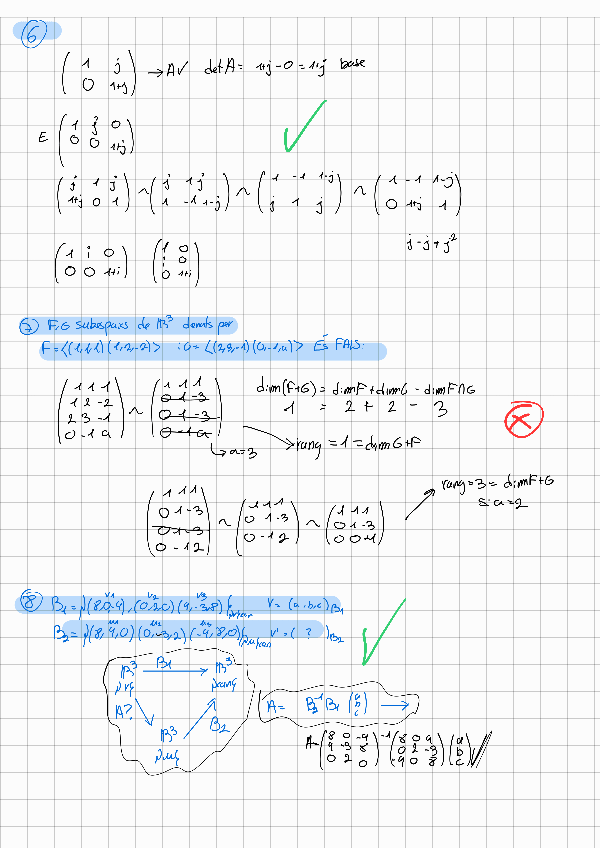 6
( 1 j
0 1+j ) → A✓ det A = 1+j - 0 = 1+j base
E ( 1 j 0
0 0 1+j )
( j 1 j
1+j 0 1 ) ~ ( j 1 j
1 -1 1-j ) ~ ( 1 -1 1-j
j 1 j ) ~ ( 1 -1 1-j
0 1+j 1 )
j-j+j²
( 1 i 0
0 0 1+i ) ( 1 0
i 0
0 1+i )
7 F, G subespais de R³ donats per
F = <(1,1,1)(1,2,-2)> i G = <(2,3,-1)(0,-1,a)> ÉS FALS:
( 1 1 1
1 2 -2
2 3 -1
0 -1 a ) ~ ( 1 1 1
0 1 -3
0 1 -3
0 -1 a )
dim(F+G) = dimF + dimG - dimF∩G
1 = 2 + 2 - 3
↳ a=3
rang = 1 = dim G+F
( 1 1 1
0 1 -3
0 1 -3
0 -1 2 ) ~ ( 1 1 1
0 1 -3
0 -1 2 ) ~ ( 1 1 1
0 1 -3
0 0 -1 )
rang = 3 = dim F+G
si a=2
8 B₁ = {(8,0,-9), (0,2,0) (9,-3,8)} V = (a,b,c)B₁
B₂ = {(8,9,0) (0,-3,2) (-9,8,0)} V' = ( ? )B₂
R³ B₁ → R³
A?
R³ B₂
A = B₂⁻¹ B₁ ( a
b
c ) →
A = ( 8 0 -9
9 -3 8
0 2 0 )⁻¹ ( 8 0 9
0 2 -3
-9 0 8 ) ( a
b
c )